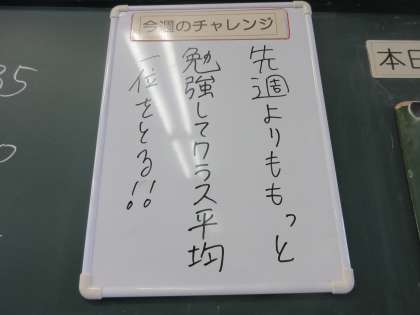 今週のチャレンジ
先週よりももっと
勉強してクラス平均
一位をとる!!
本日
35